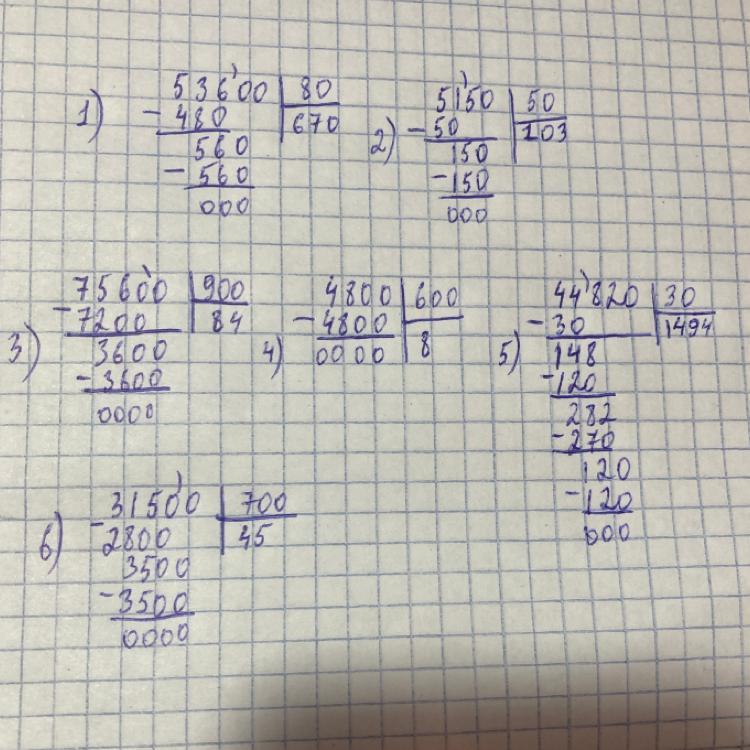 1) 53600 | 80
- 480 | 670
560
- 560
000
2) 5150 | 50
- 50 | 103
150
- 150
000
3) 75600 | 900
- 7200 | 84
3600
- 3600
0000
4) 4800 | 600
- 4800 | 8
0000
5) 44820 | 30
- 30 | 1494
148
- 120
282
- 270
120
- 120
000
6) 31500 | 700
- 2800 | 45
3500
- 3500
0000